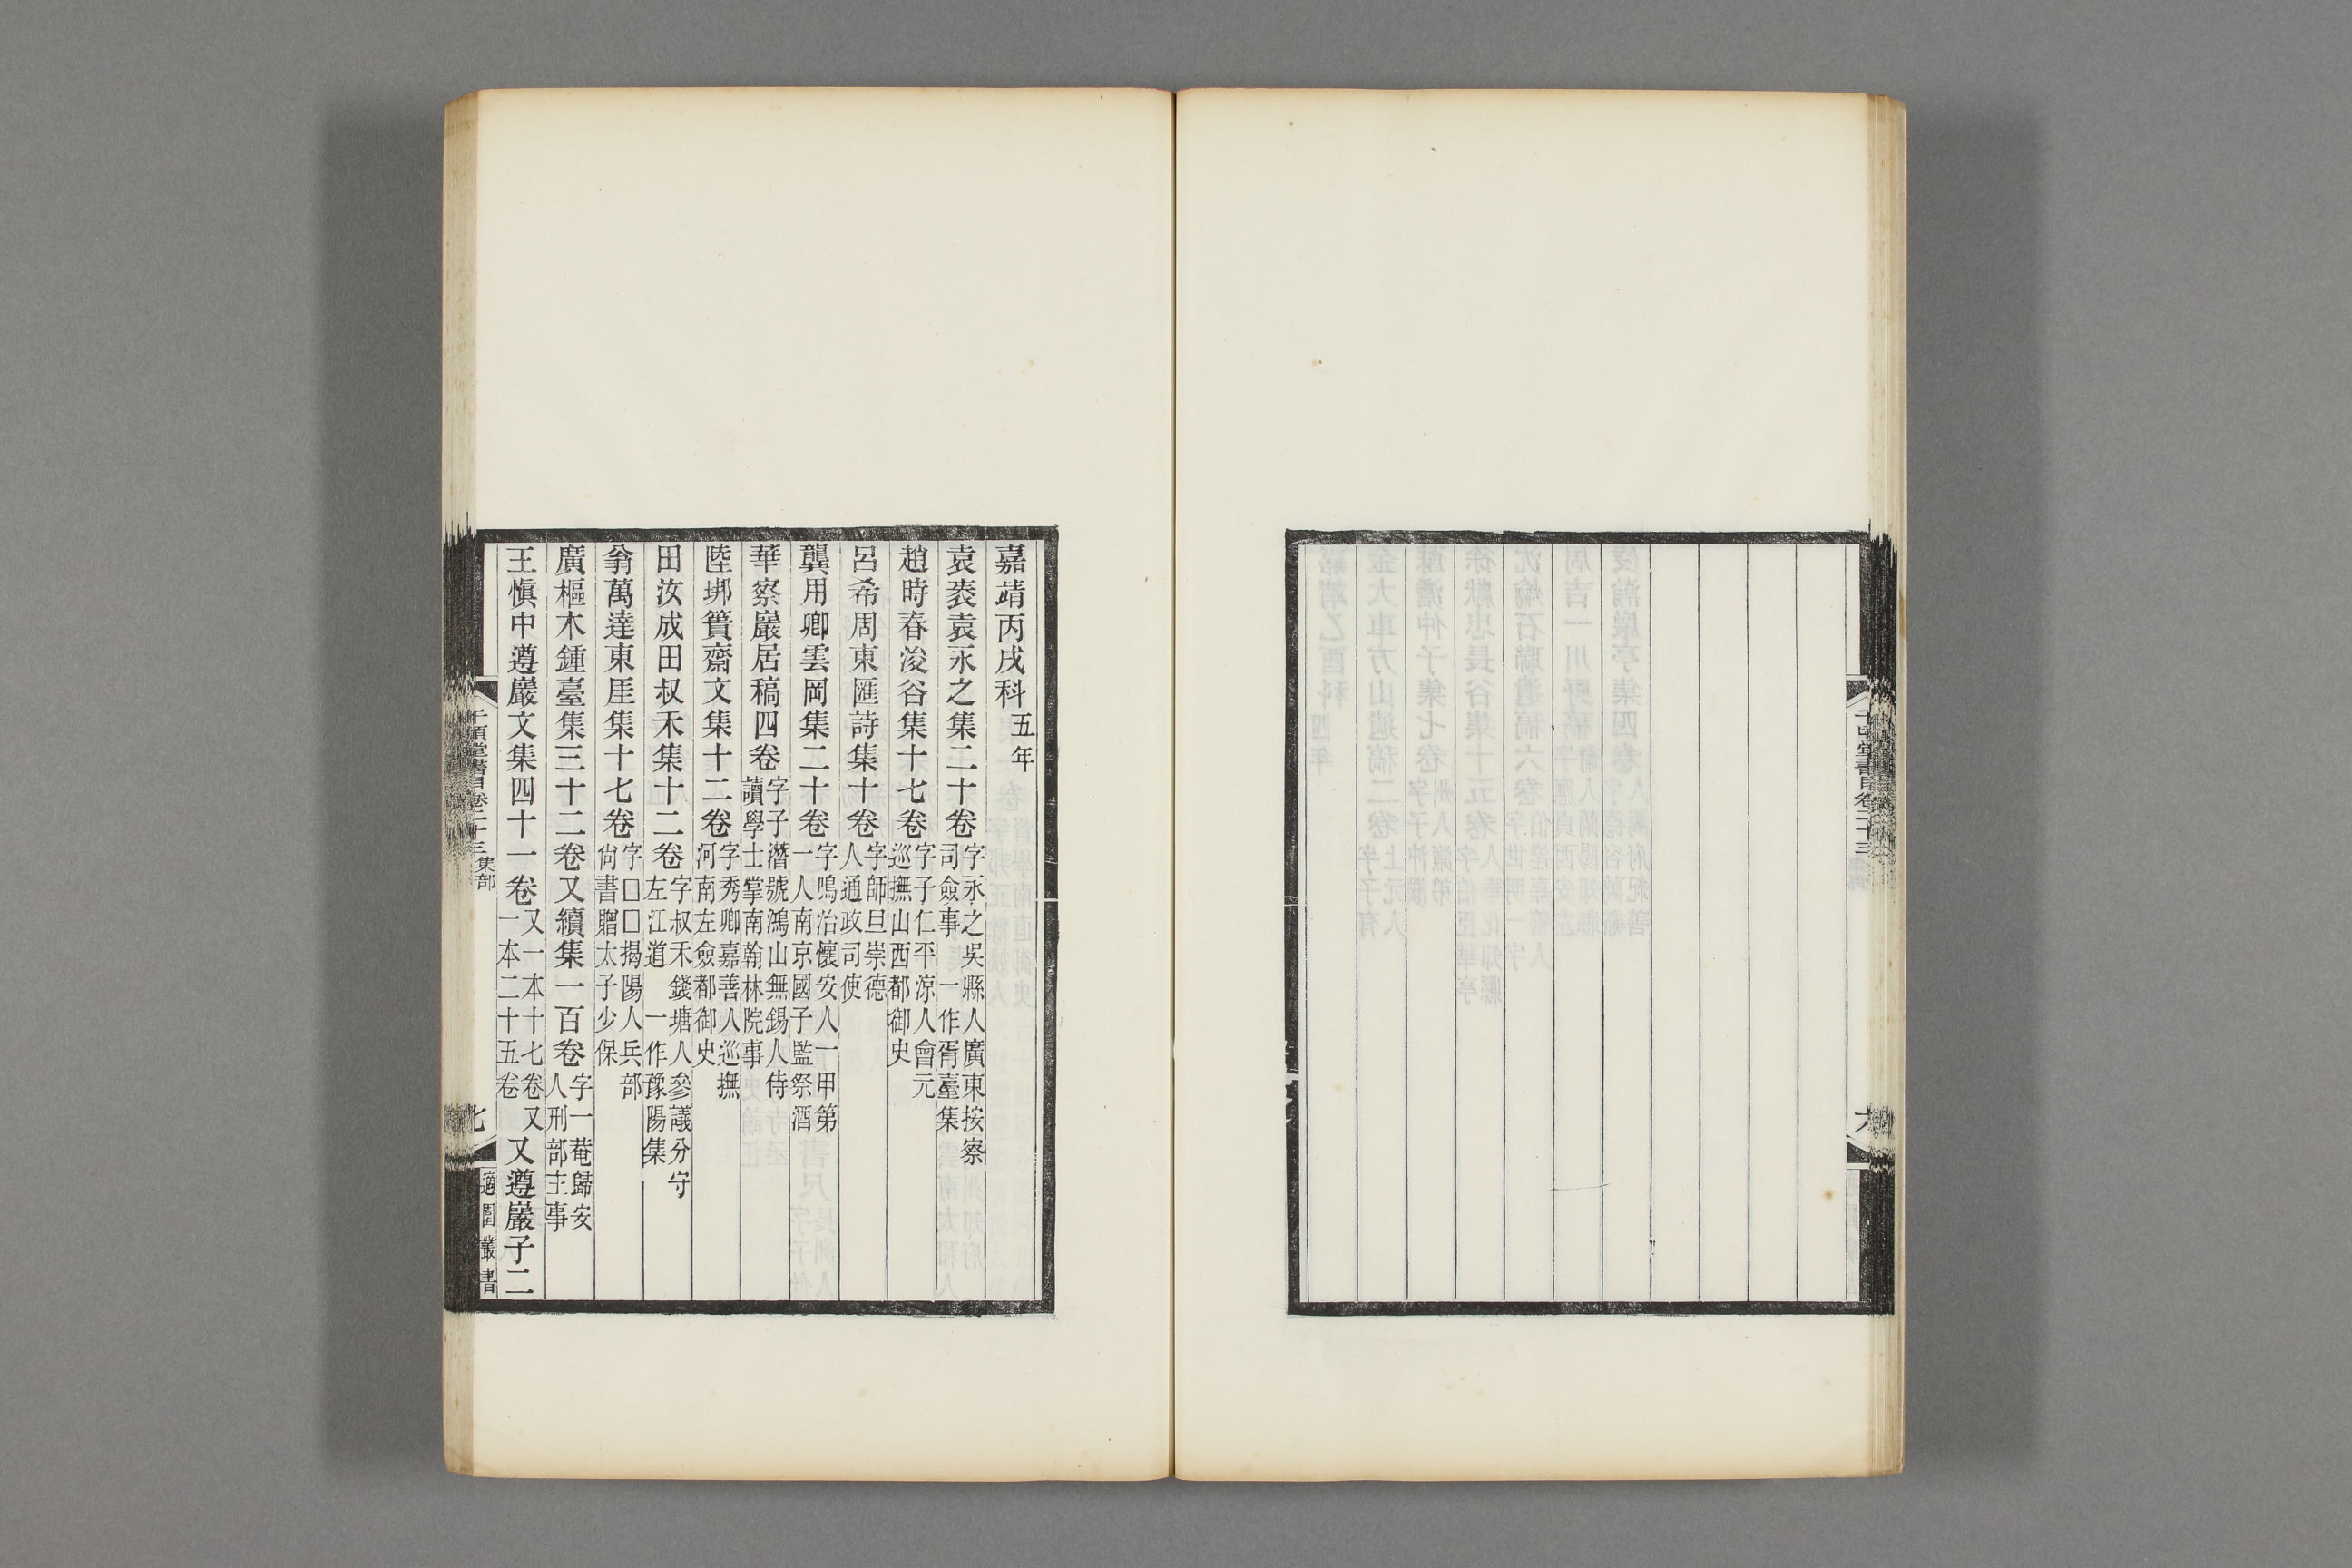 嘉靖丙戌科五年
袁袠袁永之集二十卷字永之吳縣人廣東按察司僉事一作胥臺集
趙時春浚谷集十七卷字子仁平涼人會元巡撫山西都御史
呂希周東匯詩集十卷字師旦崇德人通政司使
龔用卿雲岡集二十卷字鳴治懷安人一甲第一人南京國子監祭酒
華察巖居稿四卷字子潛號鴻山無錫人侍讀學士掌南翰林院事
陸垹簣齋文集十二卷字秀卿嘉善人巡撫河南左僉都御史
田汝成田叔禾集十二卷字叔禾錢塘人參議分守左江道一作豫陽集
翁萬達東厓集十七卷字□□揭陽人兵部尙書贈太子少保
廣樞木鍾臺集三十二卷又續集一百卷字一菴歸安人刑部主事
王愼中遵巖文集四十一卷又一本十七卷又一本二十五卷又遵巖子二
千頃堂書目卷二十三集部
七
適園叢書